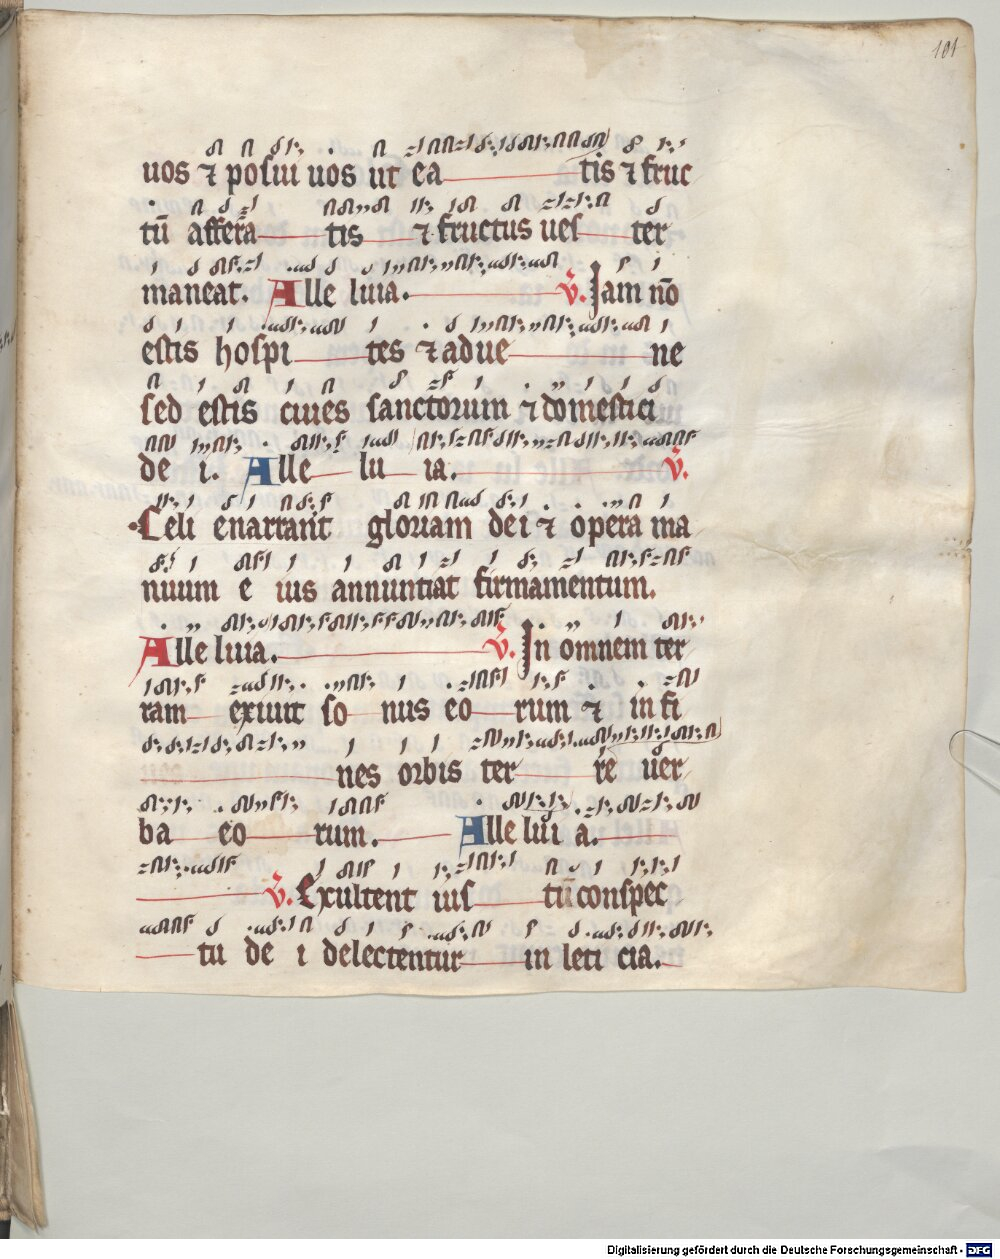 101
uos ⁊ posui uos ut ea tis ⁊ fruc
tū affera tis ⁊ fructus ues ter
maneat. Alle luia. V̄. Jam nō
estis hospi tes ⁊ adue ne
sed estis ciues sanctorum ⁊ domestici
de i. Alle lu ia. V̄.
Celi enarrant gloriam dei ⁊ opera ma
nuum e ius annuntiat firmamentum.
Alle luia. V̄. In omnem ter
ram exiuit so nus eo rum ⁊ in fi
nes orbis ter re uer
ba eo rum. Alle lui a.
V̄. Exultent ius tī conspec
tu de i delectentur in leti cia.
Digitalisierung gefördert durch die Deutsche Forschungsgemeinschaft - DFG